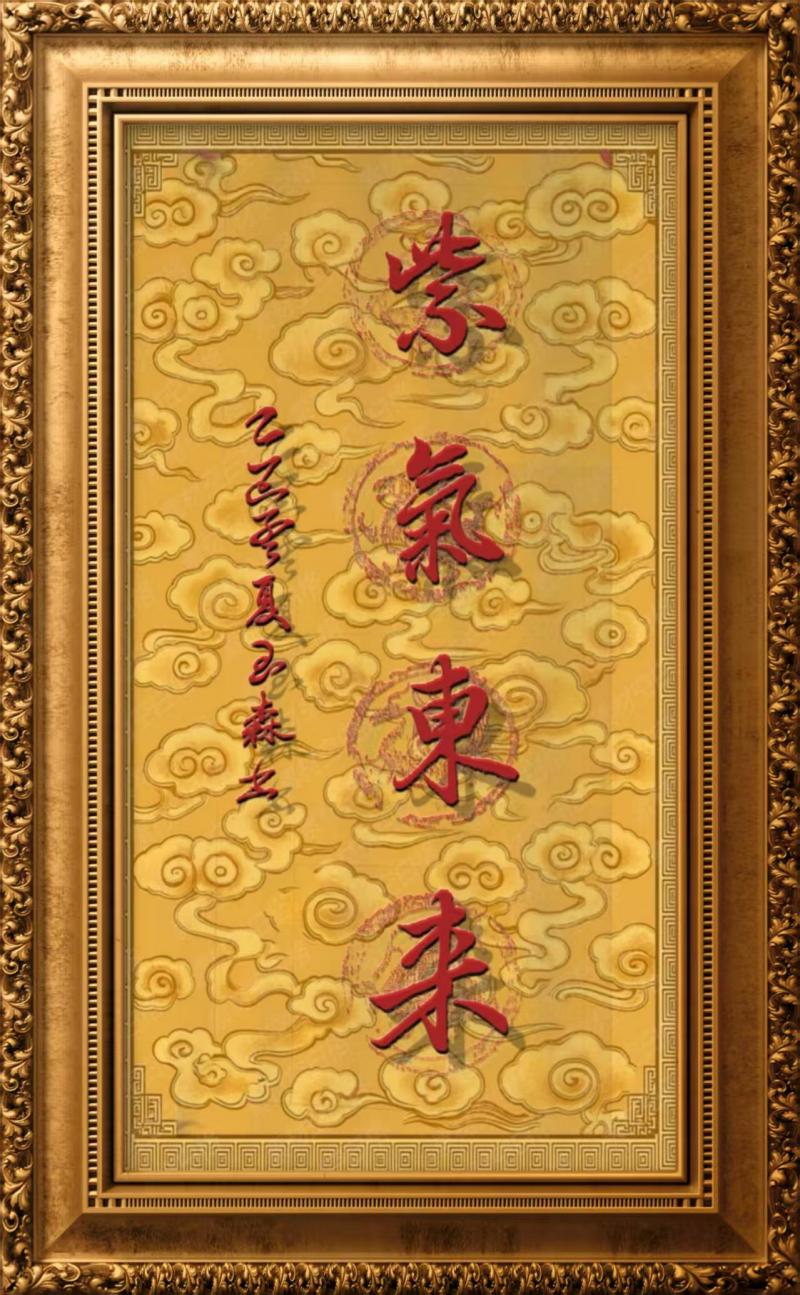 紫氣東来
乙巳孟夏玉森书